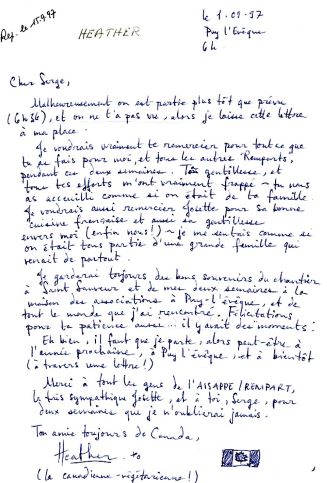 Reç. le 15.9.97
HEATHER
le 1-09-97
Puy l'Evêque
6h
Cher Serge,
Malheureusement on est partie plus tôt que prévu
(6h34), et on ne t'a pas vu, alors je laisse cette lettre
à ma place.
Je voudrais vraiment te remercier pour tout ce que
tu as fais pour moi, et tous les autres Remparts,
pendant ces deux semaines. Ta gentillesse, et
tous tes efforts m'ont vraiment frappé - tu nous
as acceuilli comme si on était de ta famille.
Je voudrais aussi remercier Josette pour sa bonne
cuisine française et aussi sa gentillesse
envers moi (enfin nous!) - je me sentais comme si
on était tous partie d'une grande famille qui
venait de partout.
Je garderai toujours des bons souvenirs du chantier
à Saint Sauveur et de mes deux semaines à la
maison des associations à Puy-l'évêque, et de
tout le monde que j'ai rencontré. Félicitations
pour ta patience aussi... il y avait des moments!
Eh bien, il faut que je parte, alors peut-être à
l'année prochaine, à Puy l'évêque, et à bientôt
(à travers une lettre!)
Merci à tout les gens de l'AISSAPPE/REMPART,
la très sympathique Josette, et à toi, Serge, pour
deux semaines que je n'oublierai jamais.
Ton amie toujours de Canada,
Heather
(la canadienne-végétarienne!)